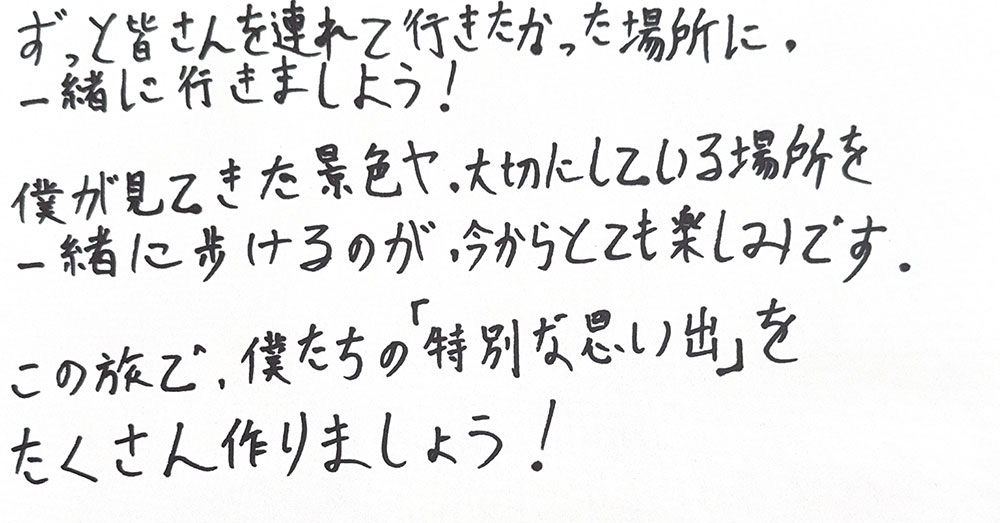 ずっと皆さんを連れて行きたかった場所に、
一緒に行きましょう!
僕が見てきた景色や、大切にしている場所を
一緒に歩けるのが、今からとても楽しみです.
この旅で、僕たちの「特別な思い出」を
たくさん作りましょう!